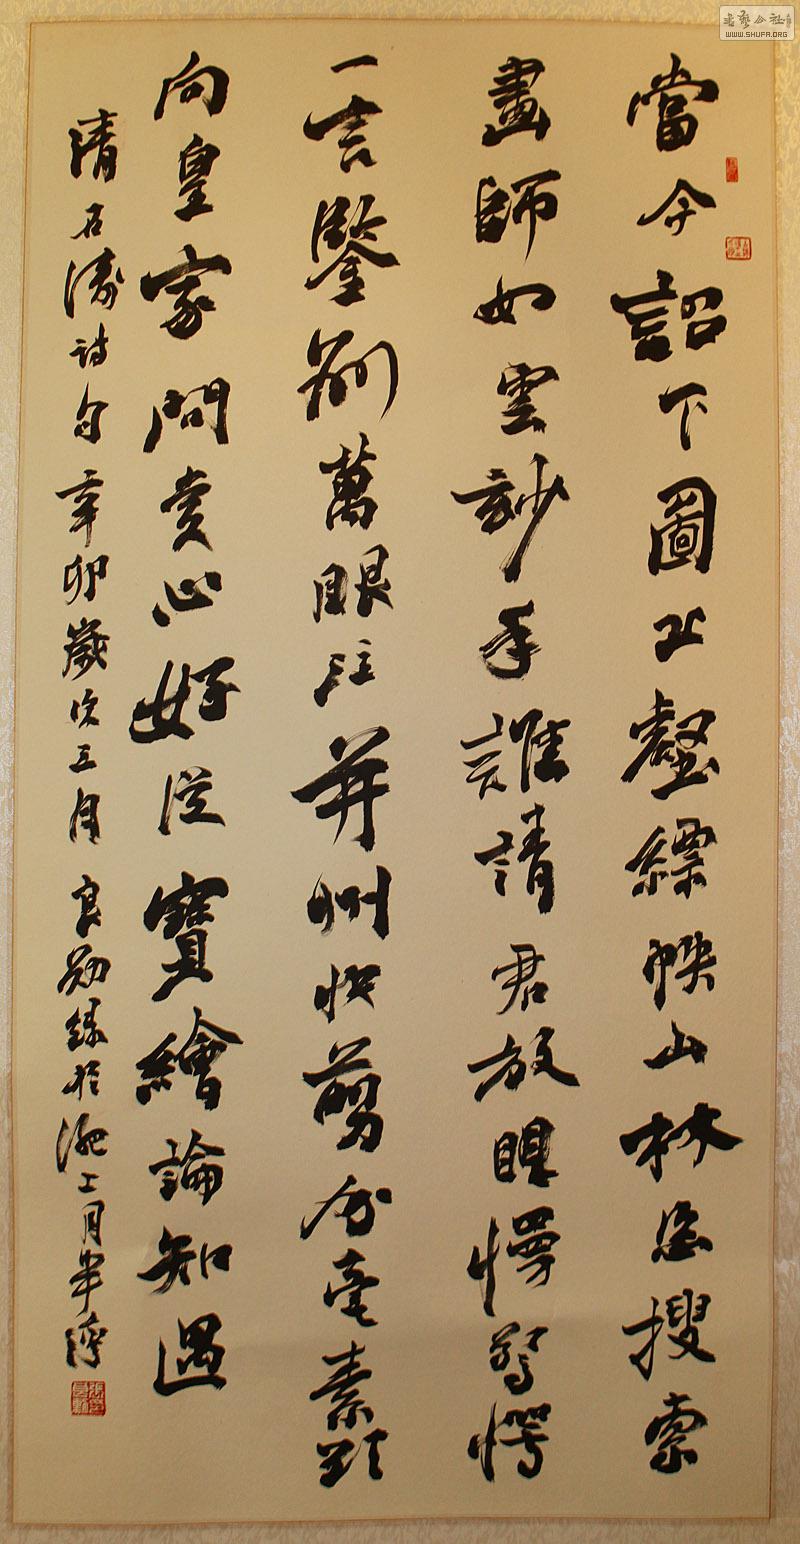 書藝公社
WWW.SHUFA.ORG
當今詔下圖丘壑縹帙山林恣搜索
畫師如雲妙手誰請君放眼慢驚愕
一言鑒別萬眼注并州快剪分毫素
向皇家問賞心好從寶繪論知遇
清石濤詩句辛卯歲次三月良勋錄於淝上月半